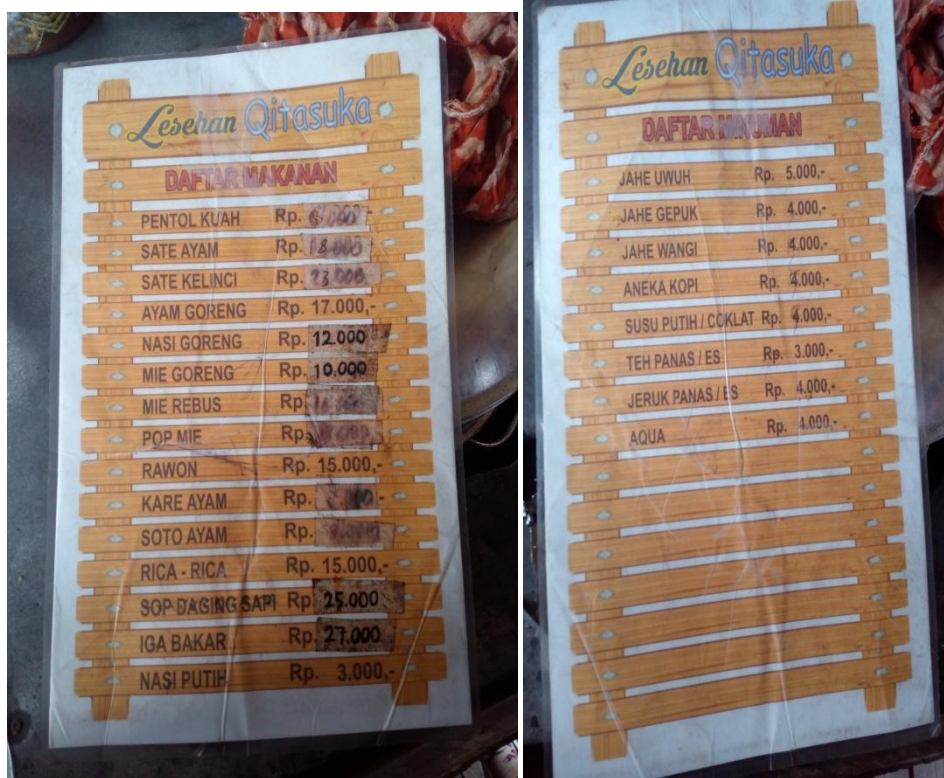 Lesehan Qitasuka
DAFTAR MAKANAN
PENTOL KUAH Rp.
SATE AYAM Rp. 18.000
SATE KELINCI Rp. 23.000
AYAM GORENG Rp. 17.000,-
NASI GORENG Rp. 12.000
MIE GORENG Rp. 10.000
MIE REBUS Rp.
POP MIE Rp.
RAWON Rp. 15.000,-
KARE AYAM Rp.
SOTO AYAM Rp.
RICA - RICA Rp. 15.000,-
SOP DAGING SAPI Rp. 25.000
IGA BAKAR Rp. 27.000
NASI PUTIH Rp. 3.000,-
Lesehan Qitasuka
DAFTAR MINUMAN
JAHE UWUH Rp. 5.000,-
JAHE GEPUK Rp. 4.000,-
JAHE WANGI Rp. 4.000,-
ANEKA KOPI Rp. 4.000,-
SUSU PUTIH / COKLAT Rp. 4.000,-
TEH PANAS / ES Rp. 3.000,-
JERUK PANAS / ES Rp. 4.000,-
AQUA Rp. 4.000,-